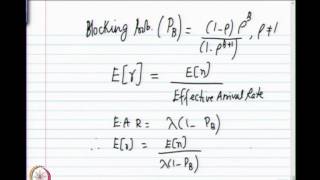 Blocking Prob. (P_B) = (1-ρ) ρ^B / (1-ρ^{B+1}), ρ≠1
E[r] = E[n] / Effective Arrival Rate
E.A.R = λ(1-P_B)
∴ E[r] = E[n] / λ(1-P_B)